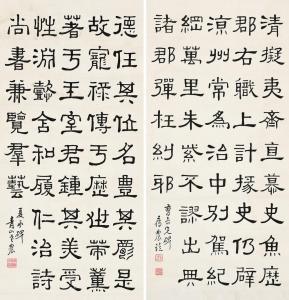 清擬夷齊直慕史魚歷
郡右職上計掾史仍辟
涼州常為治中別駕紀
綱萬里朱紫不謬出典
諸郡彈枉糾邪
德任其位名豐其爵是
故寵祿傳于歷世策薰
著于王室君鍾其美受
性淵懿含和履仁治詩
尚書兼覽羣藝
夏承碑
青山農